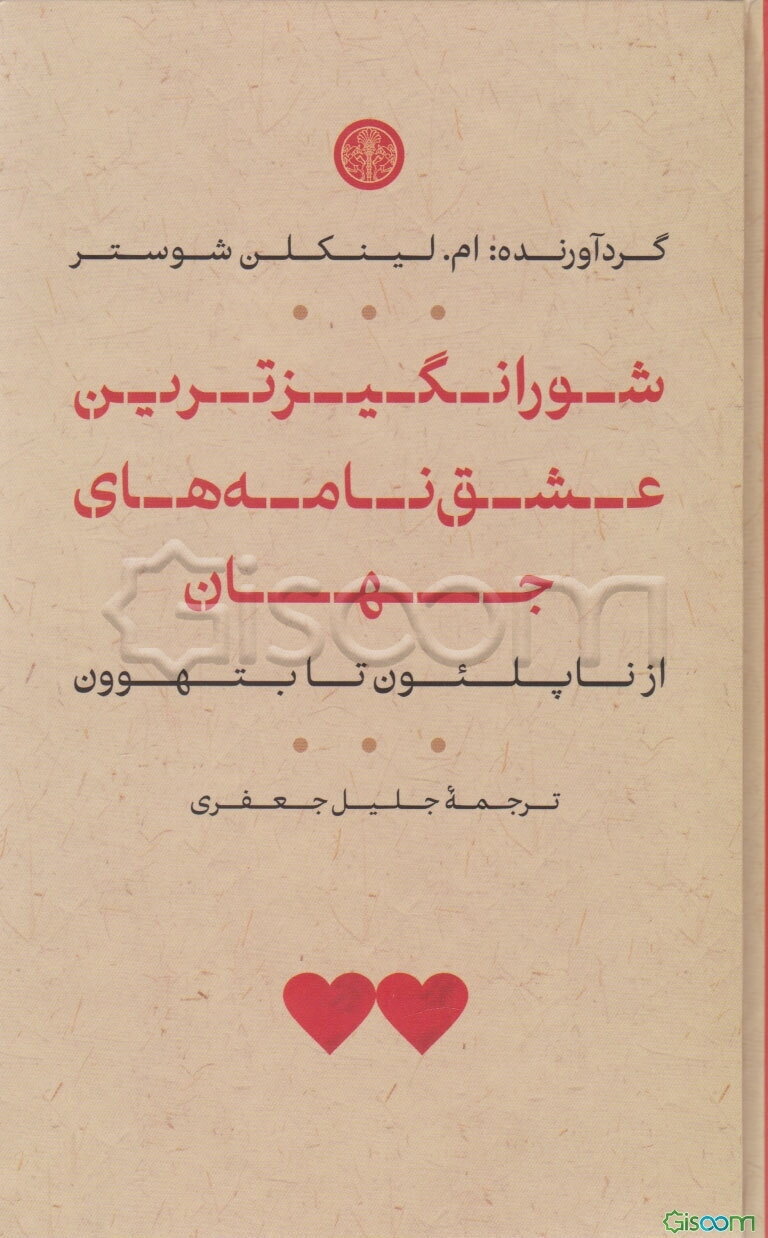 گردآورنده: ام. لینکلن شوستر
شورانگیزترین
عشق‌نامه‌های
جهان
Gisoom
از ناپلئون تا بتهوون
ترجمهٔ جلیل جعفری
Gisoom